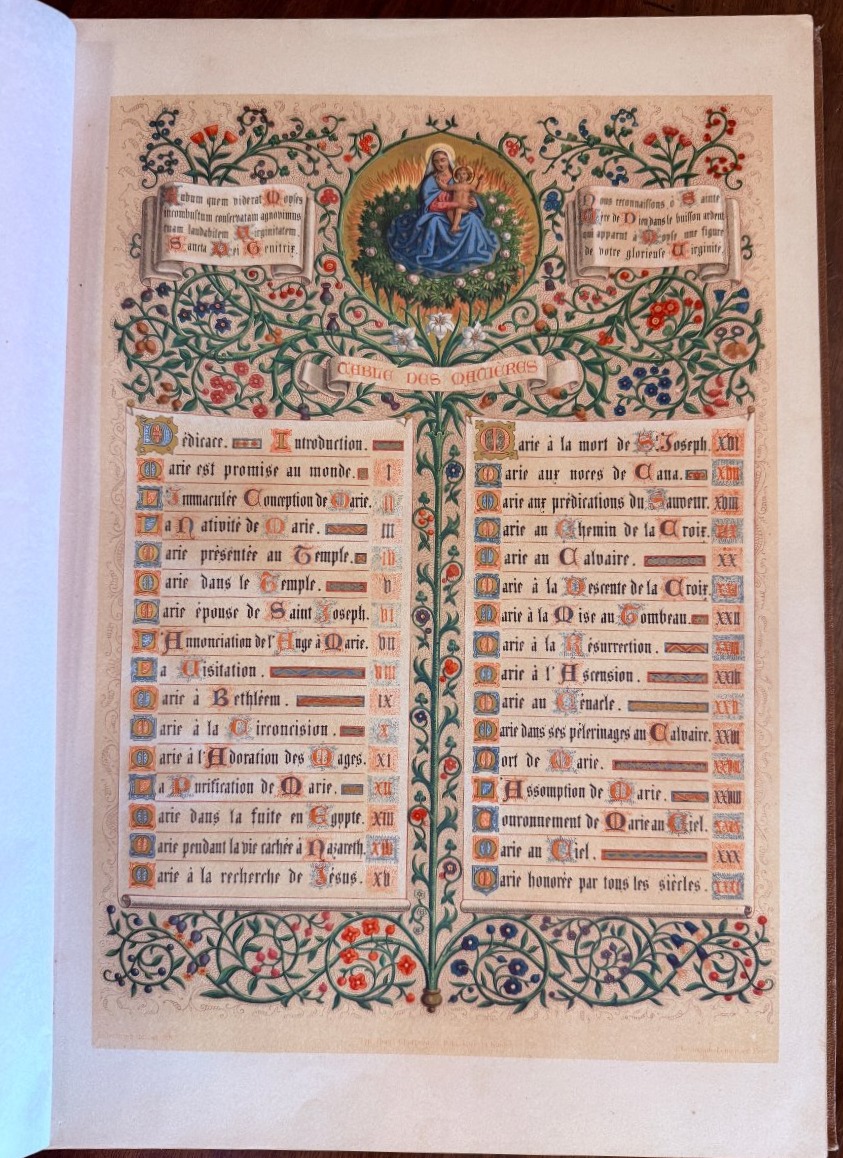 Rubum quem viderat Moyses
incombustum conservatam agnovimus
tuam laudabilem Virginitatem,
Sancta Dei Genitrix.
Nous reconnaissons, ô Sainte
Mère de Dieu dans le buisson ardent
qui apparut à Moyse une figure
de votre glorieuse Virginité.
TABLE DES MATIERES
Dédicace. Introduction.
Marie est promise au monde. I
L'Immaculée Conception de Marie. II
La Nativité de Marie. III
Marie présentée au Temple. IV
Marie dans le Temple. V
Marie épouse de Saint Joseph. VI
L'Annonciation de l'Ange à Marie. VII
La Visitation. VIII
Marie à Bethléem. IX
Marie à la Circoncision. X
Marie à l'Adoration des Mages. XI
La Purification de Marie. XII
Marie dans la fuite en Egypte. XIII
Marie pendant la vie cachée à Nazareth. XIIII
Marie à la recherche de Jésus. XV
Marie à la mort de St Joseph. XVI
Marie aux noces de Cana. XVII
Marie aux prédications du Sauveur. XVIII
Marie au Chemin de la Croix. XIX
Marie au Calvaire. XX
Marie à la Descente de la Croix. XXI
Marie à la Mise au Tombeau. XXII
Marie à la Résurrection. XXIII
Marie à l'Ascension. XXIV
Marie au Cénacle. XXV
Marie dans ses pèlerinages au Calvaire. XXVI
Mort de Marie. XXVII
L'Assomption de Marie. XXVIII
Couronnement de Marie au Ciel. XXIX
Marie au Ciel. XXX
Marie honorée par tous les siècles. XXXI